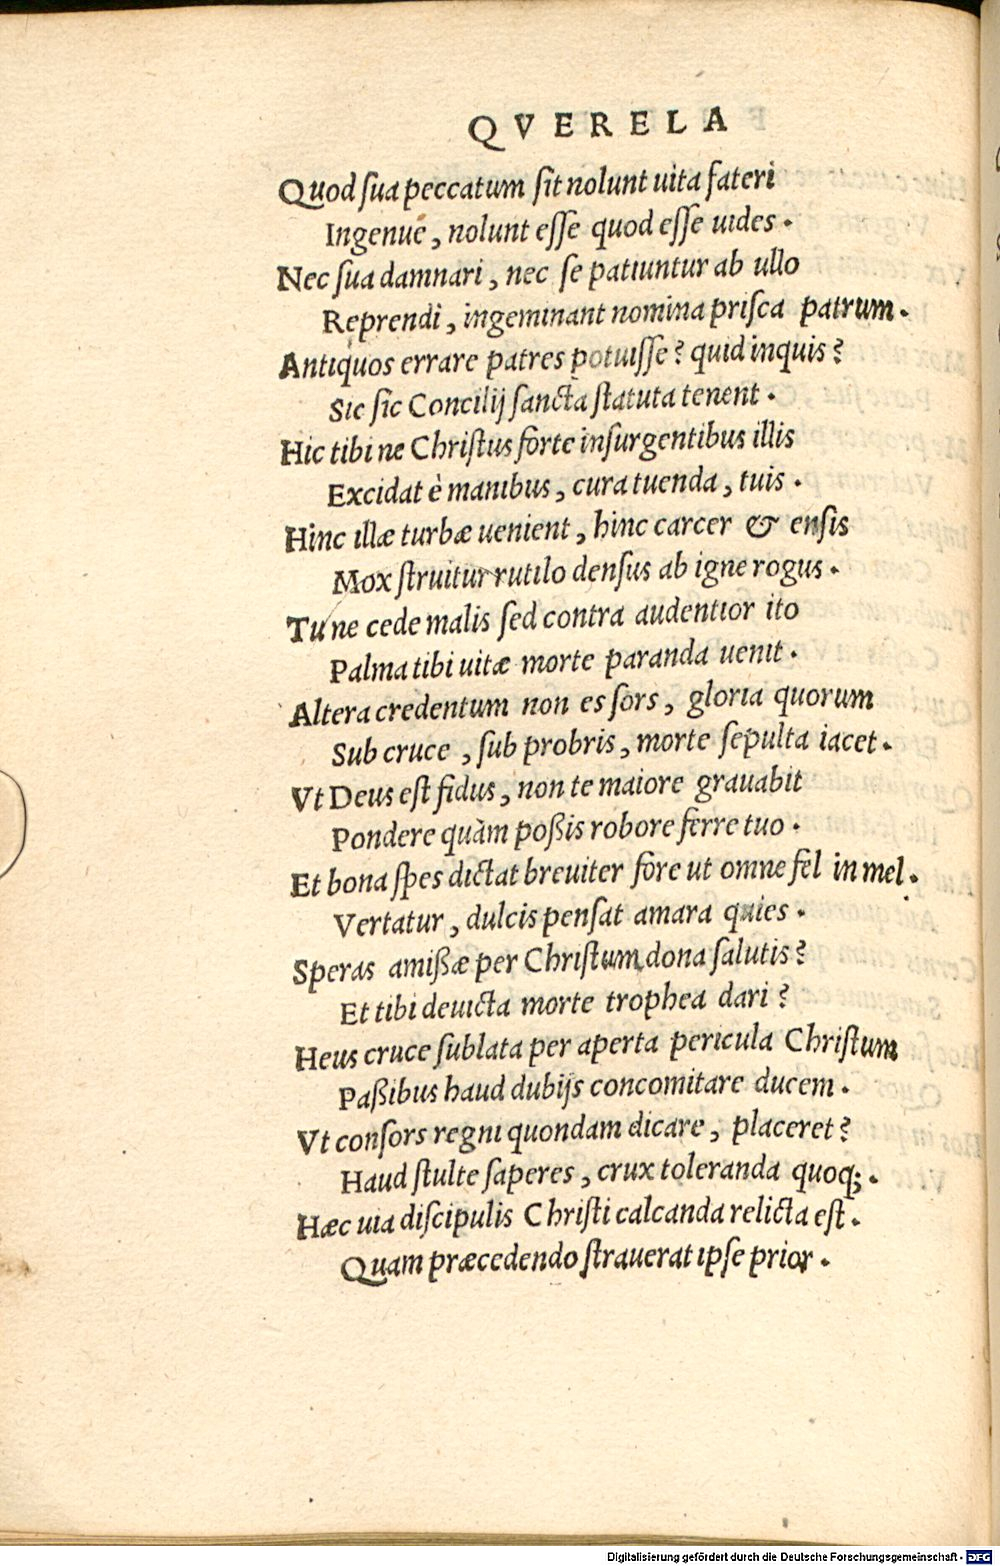 QVERELA
Quod sua peccatum sit nolunt uita fateri
Ingenué, nolunt esse quod esse uides.
Nec sua damnari, nec se patiuntur ab ullo
Reprendi, ingeminant nomina prisca patrum.
Antiquos errare patres potuisse? quid inquis?
Sic sic Concilij sancta statuta tenent.
Hic tibi ne Christus forte insurgentibus illis
Excidat è manibus, cura tuenda, tuis.
Hinc illæ turbæ uenient, hinc carcer & ensis
Mox struitur rutilo densus ab igne rogus.
Tu ne cede malis sed contra audentior ito
Palma tibi uitæ morte paranda uenit.
Altera credentum non es sors, gloria quorum
Sub cruce, sub probris, morte sepulta iacet.
Vt Deus est fidus, non te maiore grauabit
Pondere quàm poßis robore ferre tuo.
Et bona spes dictat breuiter fore ut omne fel in mel.
Vertatur, dulcis pensat amara quies.
Speras amißæ per Christum dona salutis?
Et tibi deuicta morte trophea dari?
Heus cruce sublata per aperta pericula Christum
Paßibus haud dubijs concomitare ducem.
Vt consors regni quondam dicare, placeret?
Haud stulte saperes, crux toleranda quoq;.
Hæc uia discipulis Christi calcanda relicta est.
Quam præcedendo strauerat ipse prior.
Digitalisierung gefördert durch die Deutsche Forschungsgemeinschaft - DFG